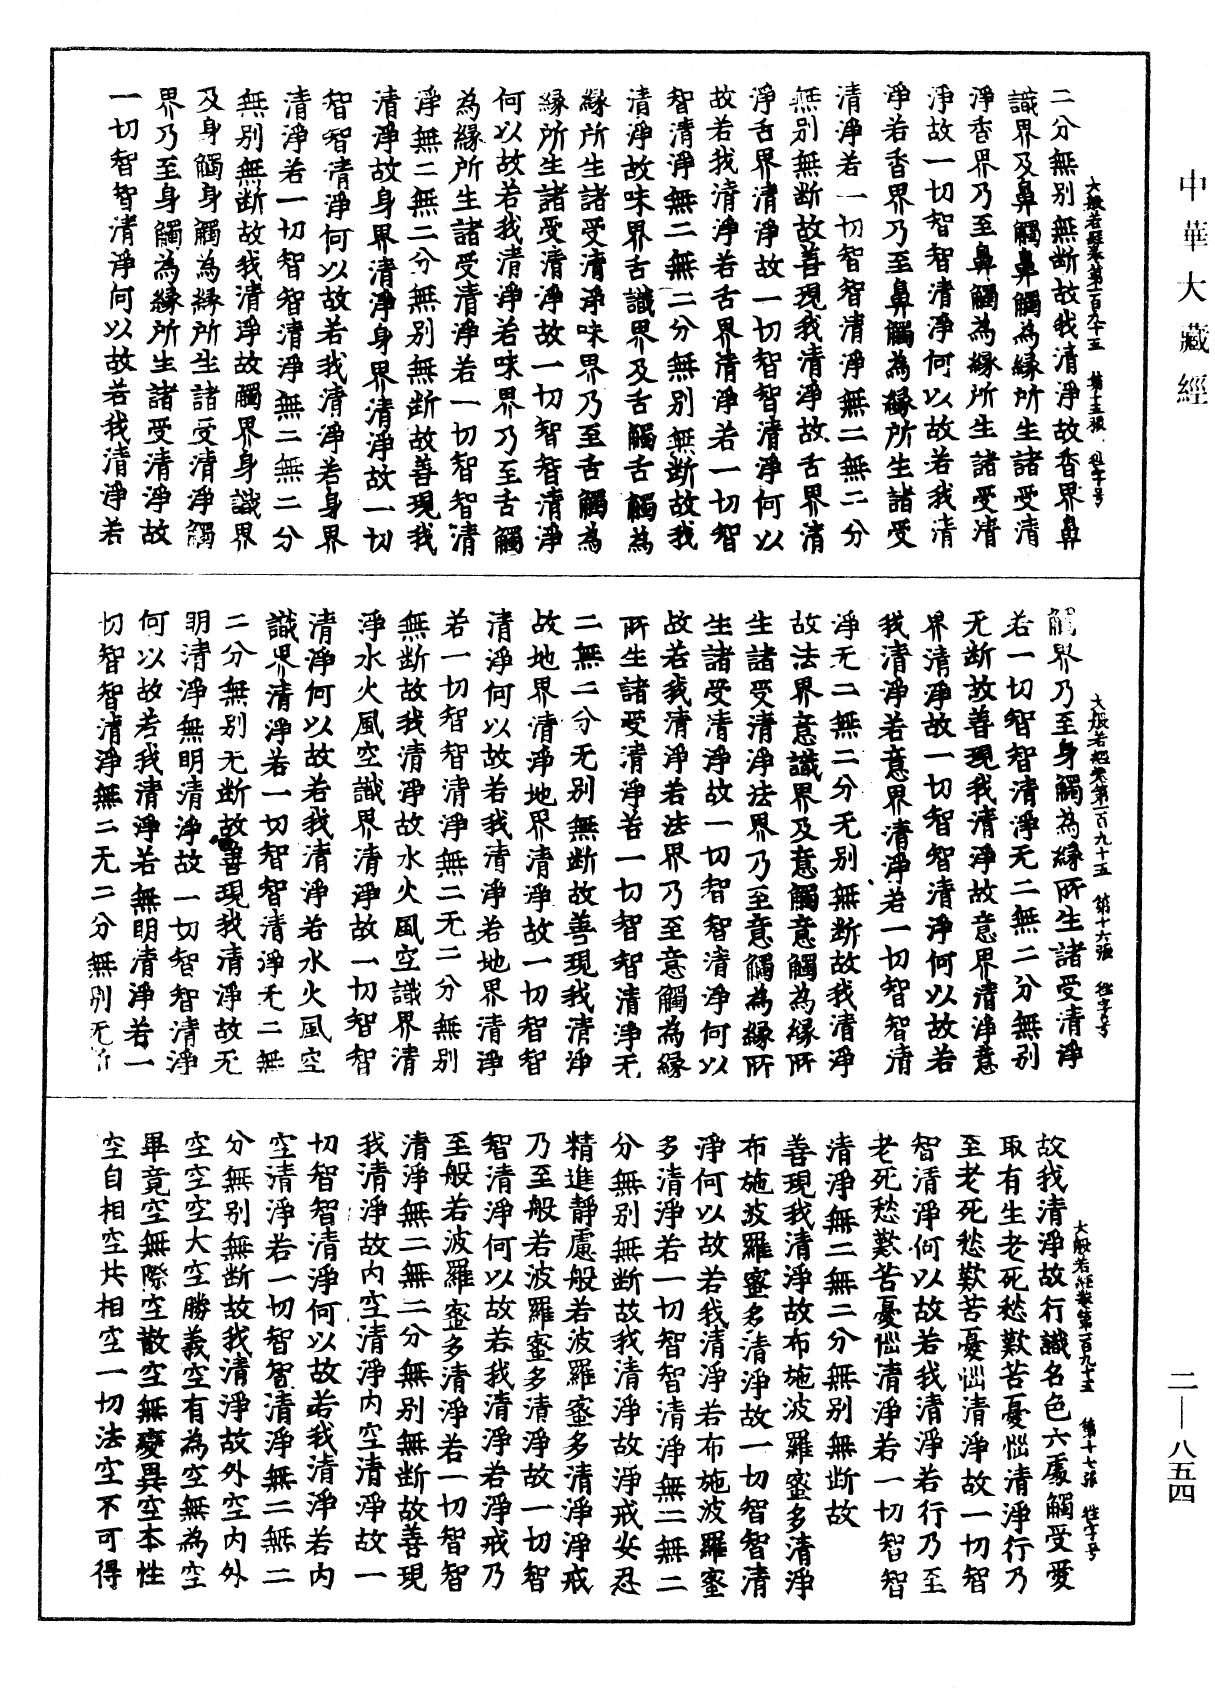 中華大藏經
二—八五四
大般若經卷第一百九十五 第十五張 往字号
二分無别無断故我清淨故香界鼻
識界及鼻觸鼻觸為縁所生諸受清
淨香界乃至鼻觸為縁所生諸受清
淨故一切智智清淨何以故若我清
淨若香界乃至鼻觸為縁所生諸受
清淨若一切智智清淨無二無二分
無别無断故善現我清淨故舌界清
淨舌界清淨故一切智智清淨何以
故若我清淨若舌界清淨若一切智
智清淨無二無二分無别無断故我
清淨故味界舌識界及舌觸舌觸為
縁所生諸受清淨味界乃至舌觸為
縁所生諸受清淨故一切智智清淨
何以故若我清淨若味界乃至舌觸
為縁所生諸受清淨若一切智智清
淨無二無二分無别無断故善現我
清淨故身界清淨身界清淨故一切
智智清淨何以故若我清淨若身界
清淨若一切智智清淨無二無二分
無别無断故我清淨故觸界身識界
及身觸身觸為縁所生諸受清淨觸
界乃至身觸為縁所生諸受清淨故
一切智智清淨何以故若我清淨若
大般若經卷第一百九十五 第十六張 往字号
觸界乃至身觸為縁所生諸受清淨
若一切智智清淨无二無二分無别
无断故善現我清淨故意界清淨意
界清淨故一切智智清淨何以故若
我清淨若意界清淨若一切智智清
淨无二無二分无别無断故我清淨
故法界意識界及意觸意觸為縁所
生諸受清淨法界乃至意觸為縁所
生諸受清淨故一切智智清淨何以
故若我清淨若法界乃至意觸為縁
所生諸受清淨若一切智智清淨无
二無二分无别無断故善現我清淨
故地界清淨地界清淨故一切智智
清淨何以故若我清淨若地界清淨
若一切智智清淨無二无二分無别
無断故我清淨故水火風空識界清
淨水火風空識界清淨故一切智智
清淨何以故若我清淨若水火風空
識界清淨若一切智智清淨无二無
二分無别无断故善現我清淨故无
明清淨無明清淨故一切智智清淨
何以故若我清淨若無明清淨若一
切智智清淨無二无二分無别无断
大般若經卷第一百九十五 第十七張 往字号
故我清淨故行識名色六處觸受愛
取有生老死愁歎苦憂惱清淨行乃
至老死愁歎苦憂惱清淨故一切智
智清淨何以故若我清淨若行乃至
老死愁歎苦憂惱清淨若一切智智
清淨無二無二分無别無断故
善現我清淨故布施波羅蜜多清淨
布施波羅蜜多清淨故一切智智清
淨何以故若我清淨若布施波羅蜜
多清淨若一切智智清淨無二無二
分無别無断故我清淨故淨戒安忍
精進靜慮般若波羅蜜多清淨淨戒
乃至般若波羅蜜多清淨故一切智
智清淨何以故若我清淨若淨戒乃
至般若波羅蜜多清淨若一切智智
清淨無二無二分無别無断故善現
我清淨故内空清淨内空清淨故一
切智智清淨何以故若我清淨若内
空清淨若一切智智清淨無二無二
分無别無断故我清淨故外空内外
空空空大空勝義空有為空無為空
畢竟空無際空散空無變異空本性
空自相空共相空一切法空不可得